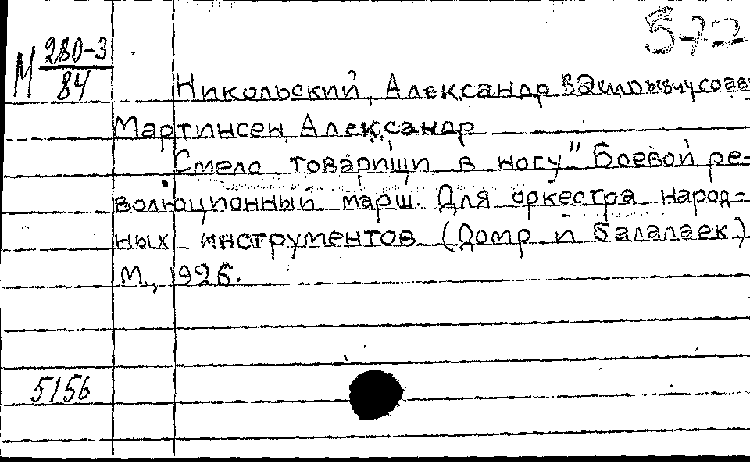 572
М 280-3
84
Никольский, Александр
Мартинсен Александр
Смело товарищи в ногу" Боевой ре-
волюционный марш. Для оркестра народ-
ных инструментов (домр и балалаек)
М., 1926.
5156